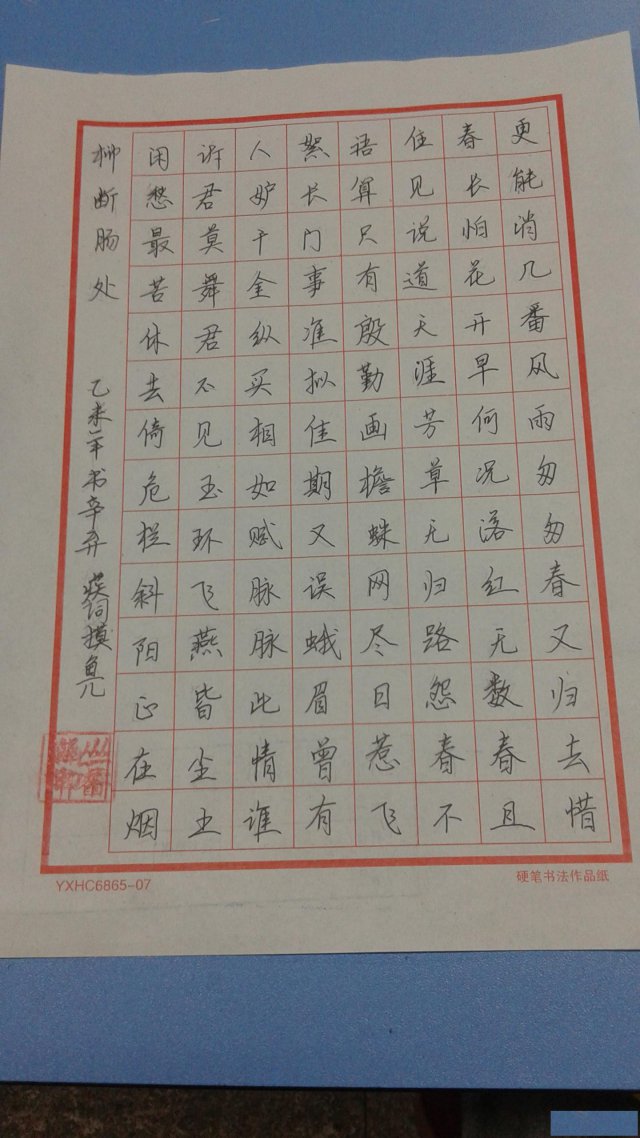 更能消几番风雨匆匆春又归去惜
春长怕花开早何况落红无数春且
住见说道天涯芳草无归路怨春不
语算只有殷勤画檐蛛网尽日惹飞
絮长门事准拟佳期又误蛾眉曾有
人妒千金纵买相如赋脉脉此情谁
诉君莫舞君不见玉环飞燕皆尘土
闲愁最苦休去倚危栏斜阳正在烟
柳断肠处 乙未年书辛弃疾词摸鱼儿
YXHC6865-07
硬笔书法作品纸